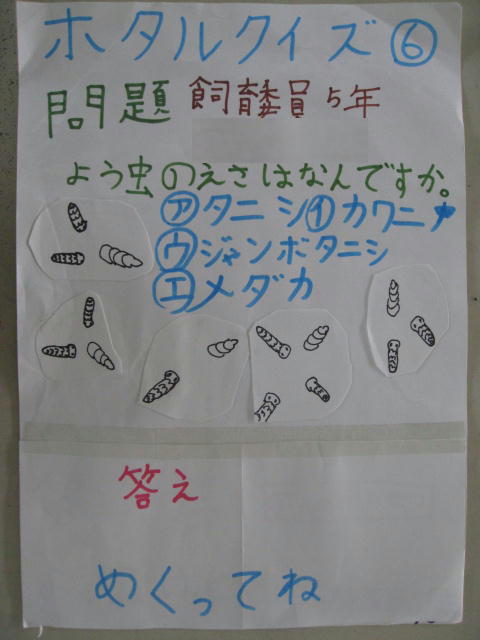 ホタルクイズ⑥
問題 飼育委員5年
よう虫のえさはなんですか。
㋐タニシ㋑カワニナ
㋒ジャンボタニシ
㋓メダカ
答え
めくってね